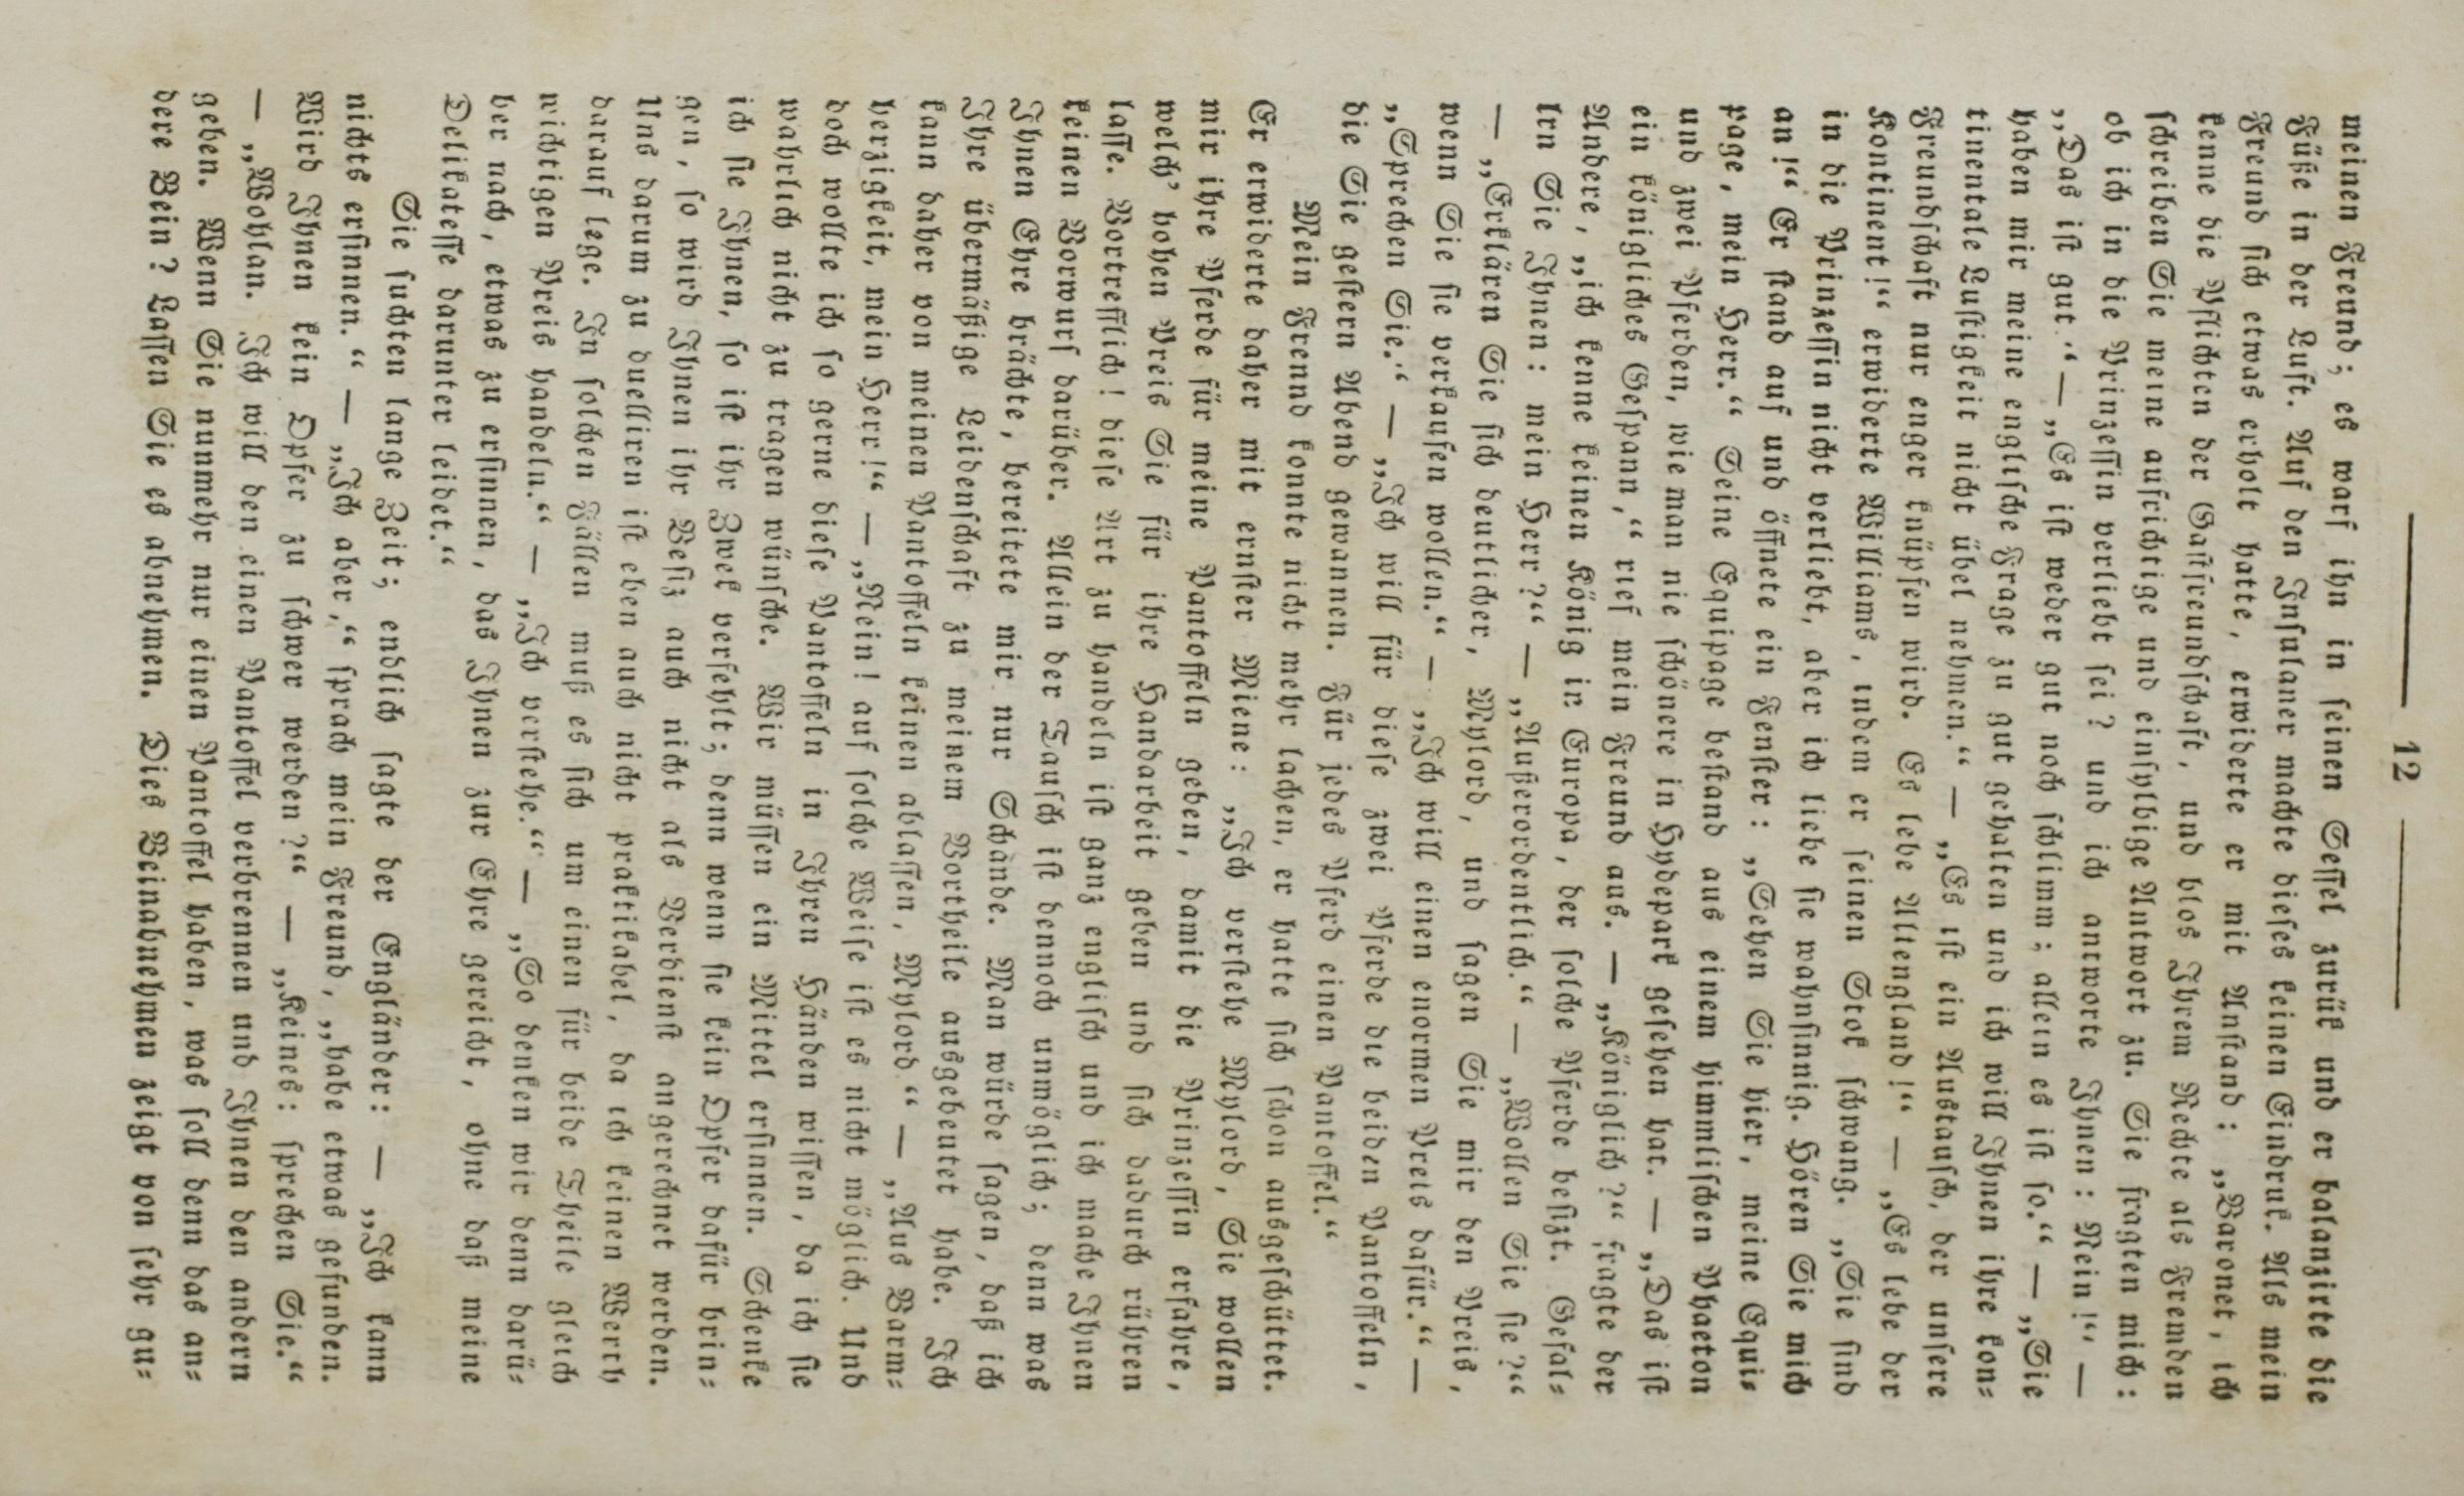 — 12 —
meinen Freund; es warf ihn in seinen Sessel zurük und er balanzirte die
Füße in der Luft. Auf den Insulaner machte dieses keinen Eindruk. Als mein
Freund sich etwas erholt hatte, erwiderte er mit Anstand: „Baronet, ich
kenne die Pflichten der Gastfreundschaft, und blos Ihrem Rechte als Fremden
schreiben Sie meine aufrichtige und einsylbige Antwort zu. Sie fragten mich:
ob ich in die Prinzessin verliebt sei? und ich antworte Ihnen: Nein!“ —
„Das ist gut.“ — „Es ist weder gut noch schlimm; allein es ist so.“ — „Sie
haben mir meine englische Frage zu gut gehalten und ich will Ihnen ihre kon=
tinentale Lustigkeit nicht übel nehmen.“ — „Es ist ein Austausch, der unsere
Freundschaft nur enger knüpfen wird. Es lebe Altengland!“ — „Es lebe der
Kontinent!“ erwiderte Williams, indem er seinen Stok schwang. „Sie sind
in die Prinzessin nicht verliebt, aber ich liebe sie wahnsinnig. Hören Sie mich
an!“ Er stand auf und öffnete ein Fenster: „Sehen Sie hier, meine Equi=
page, mein Herr.“ Seine Equipage bestand aus einem himmlischen Phaeton
und zwei Pferden, wie man nie schönere in Hydepark gesehen hat. — „Das ist
ein königliches Gespann,“ rief mein Freund aus. — „Königlich?“ fragte der
Andere, „ich kenne keinen König in Europa, der solche Pferde besizt. Gefal=
len Sie Ihnen: mein Herr?“ — „Außerordentlich.“ — „Wollen Sie sie?“
— „Erklären Sie sich deutlicher, Mylord, und sagen Sie mir den Preis,
wenn Sie sie verkaufen wollen.“ — „Ich will einen enormen Preis dafür.“ —
„Sprechen Sie.“ — „Ich will für diese zwei Pferde die beiden Pantoffeln,
die Sie gestern Abend gewannen. Für jedes Pferd einen Pantoffel.“
Mein Freund konnte nicht mehr lachen, er hatte sich schon ausgeschüttet.
Er erwiderte daher mit ernster Miene: „Ich verstehe Mylord, Sie wollen
mir ihre Pferde für meine Pantoffeln geben, damit die Prinzessin erfahre,
welch’ hohen Preis Sie für ihre Handarbeit geben und sich dadurch rühren
lasse. Vortrefflich! diese Art zu handeln ist ganz englisch und ich mache Ihnen
keinen Vorwurf darüber. Allein der Tausch ist dennoch unmöglich; denn was
Ihnen Ehre brächte, bereitete mir nur Schande. Man würde sagen, daß ich
Ihre übermäßige Leidenschaft zu meinem Vortheile ausgebeutet habe. Ich
kann daher von meinen Pantoffeln keinen ablassen, Mylord“ — „Aus Barm=
herzigkeit, mein Herr!“ — „Nein! auf solche Weise ist es nicht möglich. Und
doch wollte ich so gerne diese Pantoffeln in Ihren Händen wissen, da ich sie
wahrlich nicht zu tragen wünsche. Wir müssen ein Mittel ersinnen. Schenke
ich sie Ihnen, so ist ihr Zwek verfehlt; denn wenn sie kein Opfer dafür brin=
gen, so wird Ihnen ihr Besiz auch nicht als Verdienst angerechnet werden.
Uns darum zu duelliren ist eben auch nicht praktikabel, da ich keinen Werth
darauf lege. In solchen Fällen muß es sich um einen für beide Theile gleich
wichtigen Preis handeln.“ — „Ich verstehe.“ — „So denken wir denn darü=
ber nach, etwas zu ersinnen, das Ihnen zur Ehre gereicht, ohne daß meine
Delikatesse darunter leidet.“
Sie suchten lange Zeit; endlich sagte der Engländer: — „Ich kann
nichts ersinnen.“ — „Ich aber,“ sprach mein Freund, „habe etwas gefunden.
Wird Ihnen kein Opfer zu schwer werden?“ — „Keines: sprechen Sie.“
— „Wohlan. Ich will den einen Pantoffel verbrennen und Ihnen den andern
geben. Wenn Sie nunmehr nur einen Pantoffel haben, was soll denn das an=
dere Bein? Lassen Sie es abnehmen. Dies Beinabnehmen zeigt von sehr gu=